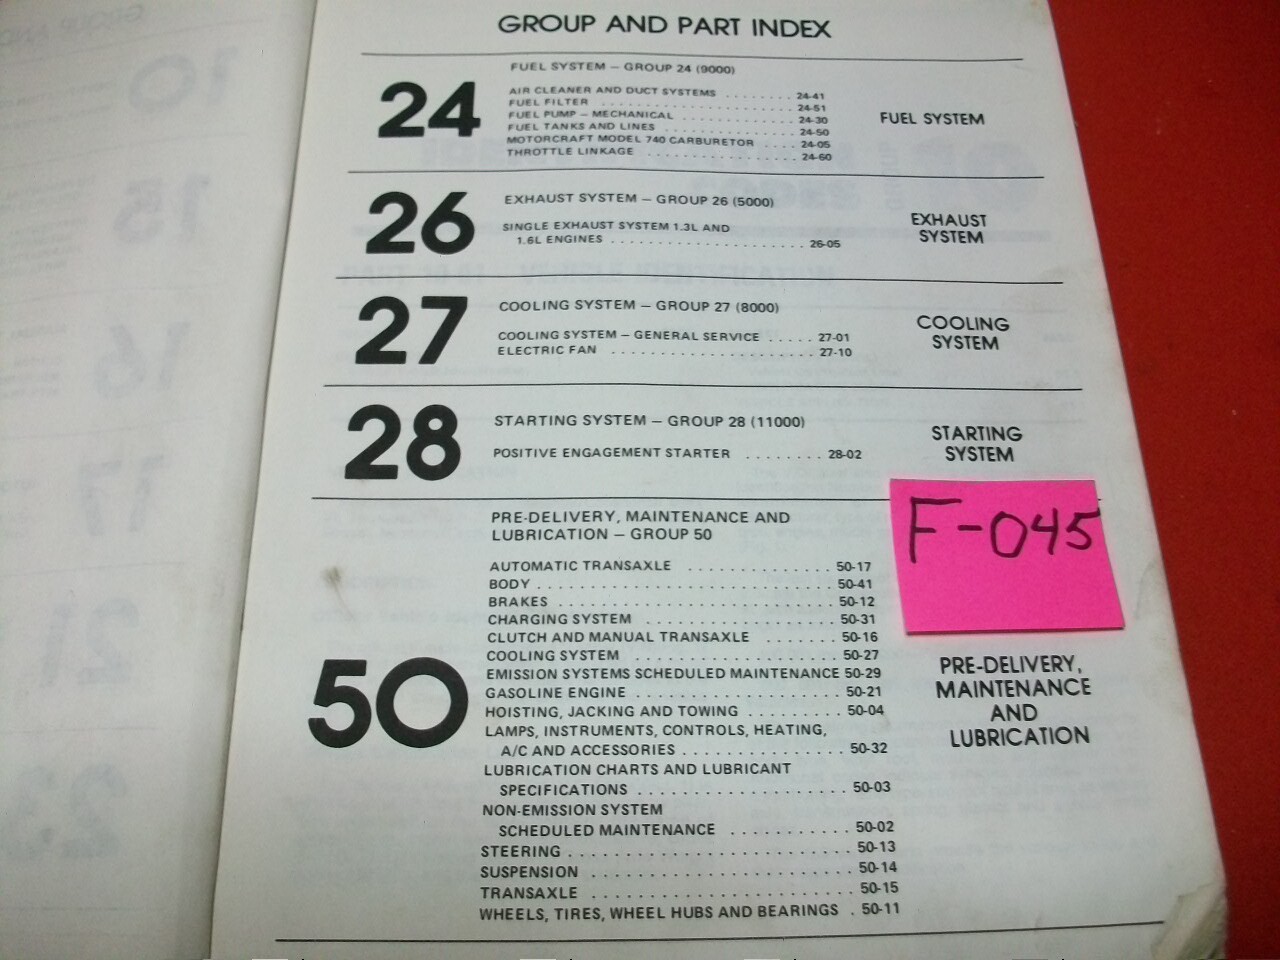 GROUP AND PART INDEX
24
FUEL SYSTEM — GROUP 24 (9000)
AIR CLEANER AND DUCT SYSTEMS ........ 24-41
FUEL FILTER .................. 24-51
FUEL PUMP — MECHANICAL ............ 24-30
FUEL TANKS AND LINES .............. 24-50
MOTORCRAFT MODEL 740 CARBURETOR .... 24-05
THROTTLE LINKAGE ................ 24-60
FUEL SYSTEM
26
EXHAUST SYSTEM — GROUP 26 (5000)
SINGLE EXHAUST SYSTEM 1.3L AND
1.6L ENGINES ..................... 26-05
EXHAUST
SYSTEM
27
COOLING SYSTEM — GROUP 27 (8000)
COOLING SYSTEM — GENERAL SERVICE ..... 27-01
ELECTRIC FAN ..................... 27-10
COOLING
SYSTEM
28
STARTING SYSTEM — GROUP 28 (11000)
POSITIVE ENGAGEMENT STARTER ........ 28-02
STARTING
SYSTEM
F-045
50
PRE-DELIVERY, MAINTENANCE AND
LUBRICATION — GROUP 50
AUTOMATIC TRANSAXLE ............. 50-17
BODY .......................... 50-41
BRAKES ........................ 50-12
CHARGING SYSTEM ................ 50-31
CLUTCH AND MANUAL TRANSAXLE ....... 50-16
COOLING SYSTEM .................. 50-27
EMISSION SYSTEMS SCHEDULED MAINTENANCE 50-29
GASOLINE ENGINE .................. 50-21
HOISTING, JACKING AND TOWING ......... 50-04
LAMPS, INSTRUMENTS, CONTROLS, HEATING,
A/C AND ACCESSORIES .............. 50-32
LUBRICATION CHARTS AND LUBRICANT
SPECIFICATIONS ................... 50-03
NON-EMISSION SYSTEM
SCHEDULED MAINTENANCE ........... 50-02
STEERING ......................... 50-13
SUSPENSION ....................... 50-14
TRANSAXLE ........................ 50-15
WHEELS, TIRES, WHEEL HUBS AND BEARINGS . 50-11
PRE-DELIVERY,
MAINTENANCE
AND
LUBRICATION